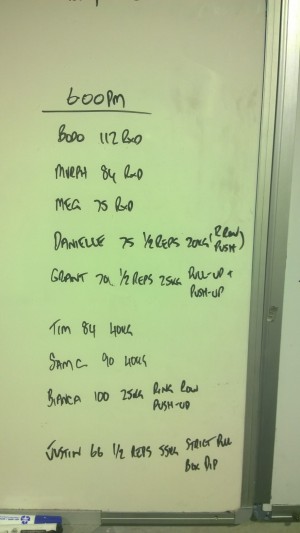 6:00PM
BODO 112 RXD
MURPH 84 RXD
MEG 75 RXD
DANIELLE 75 1/2 REPS 20KG (R ROW PUSH)
GRANT 1/2 REPS 25KG PULL-UP + PUSH-UP
TIM 84 40KG
SAM C 90 40KG
BIANCA 100 25KG RING ROW PUSH-UP
JUSTIN 66 1/2 REPS 55KG STRICT PULL BOX DIP